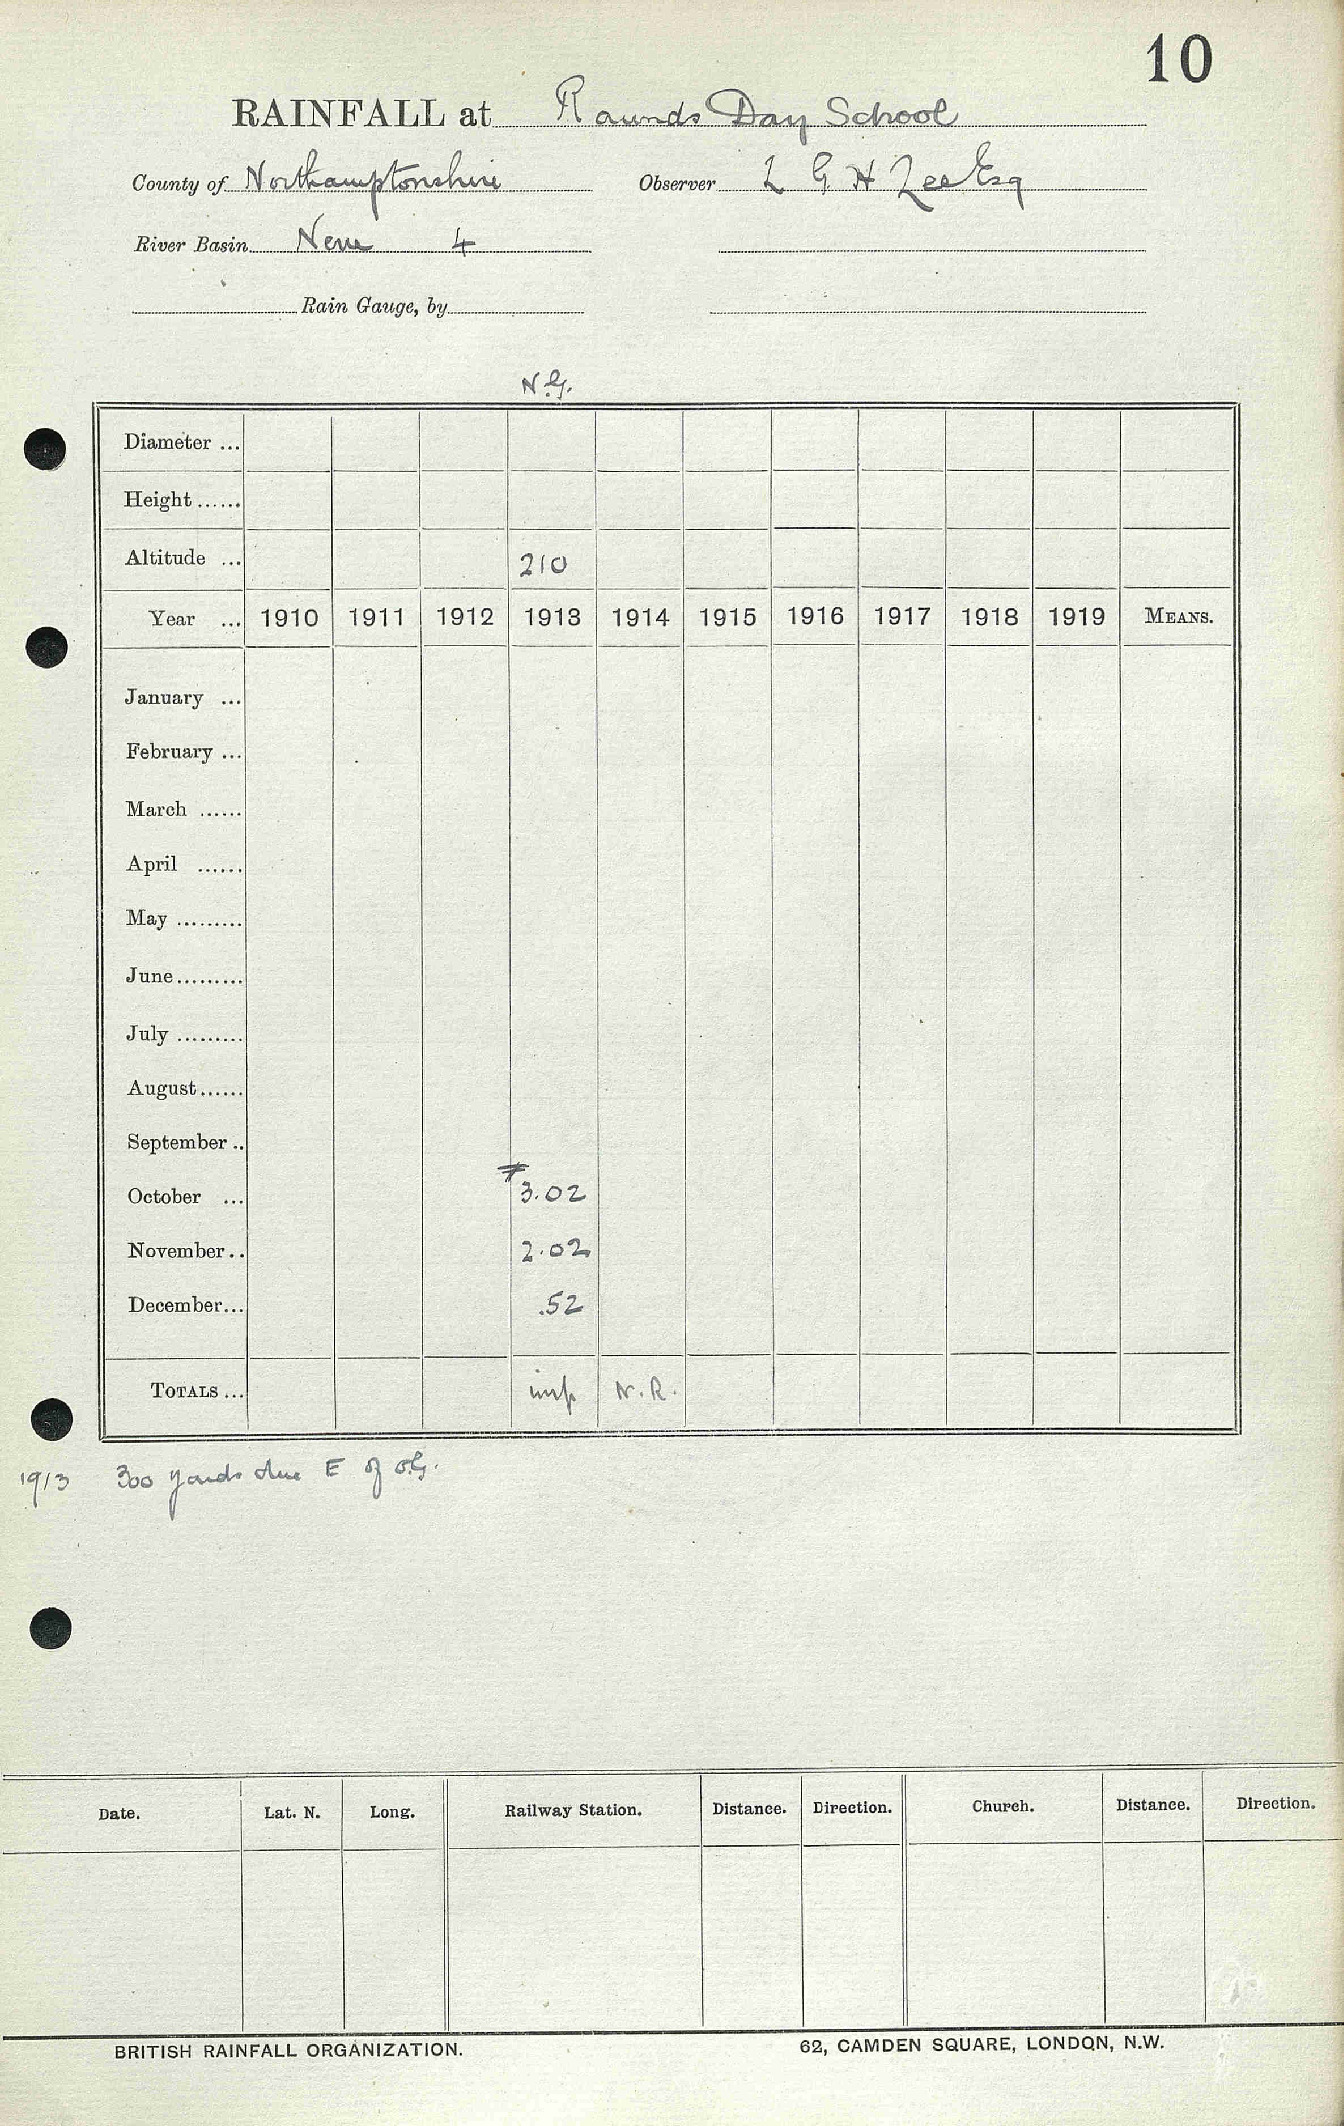 10
RAINFALL at Raunds Day School
County of Northamptonshire Observer L G H Lee Esq
River Basin Nene 4
Rain Gauge, by
N.G.
Diameter ...
Height ......
Altitude ... 210
Year ... 1910 1911 1912 1913 1914 1915 1916 1917 1918 1919 MEANS.
January ...
February ...
March ......
April ......
May .........
June.........
July .........
August......
September ..
October ... 3.02
November.. 2.02
December... .52
TOTALS ... imp N.R.
1913 300 yards due E of O.G.
Date. Lat. N. Long. Railway Station. Distance. Direction. Church. Distance. Direction.
BRITISH RAINFALL ORGANIZATION. 62, CAMDEN SQUARE, LONDON, N.W.